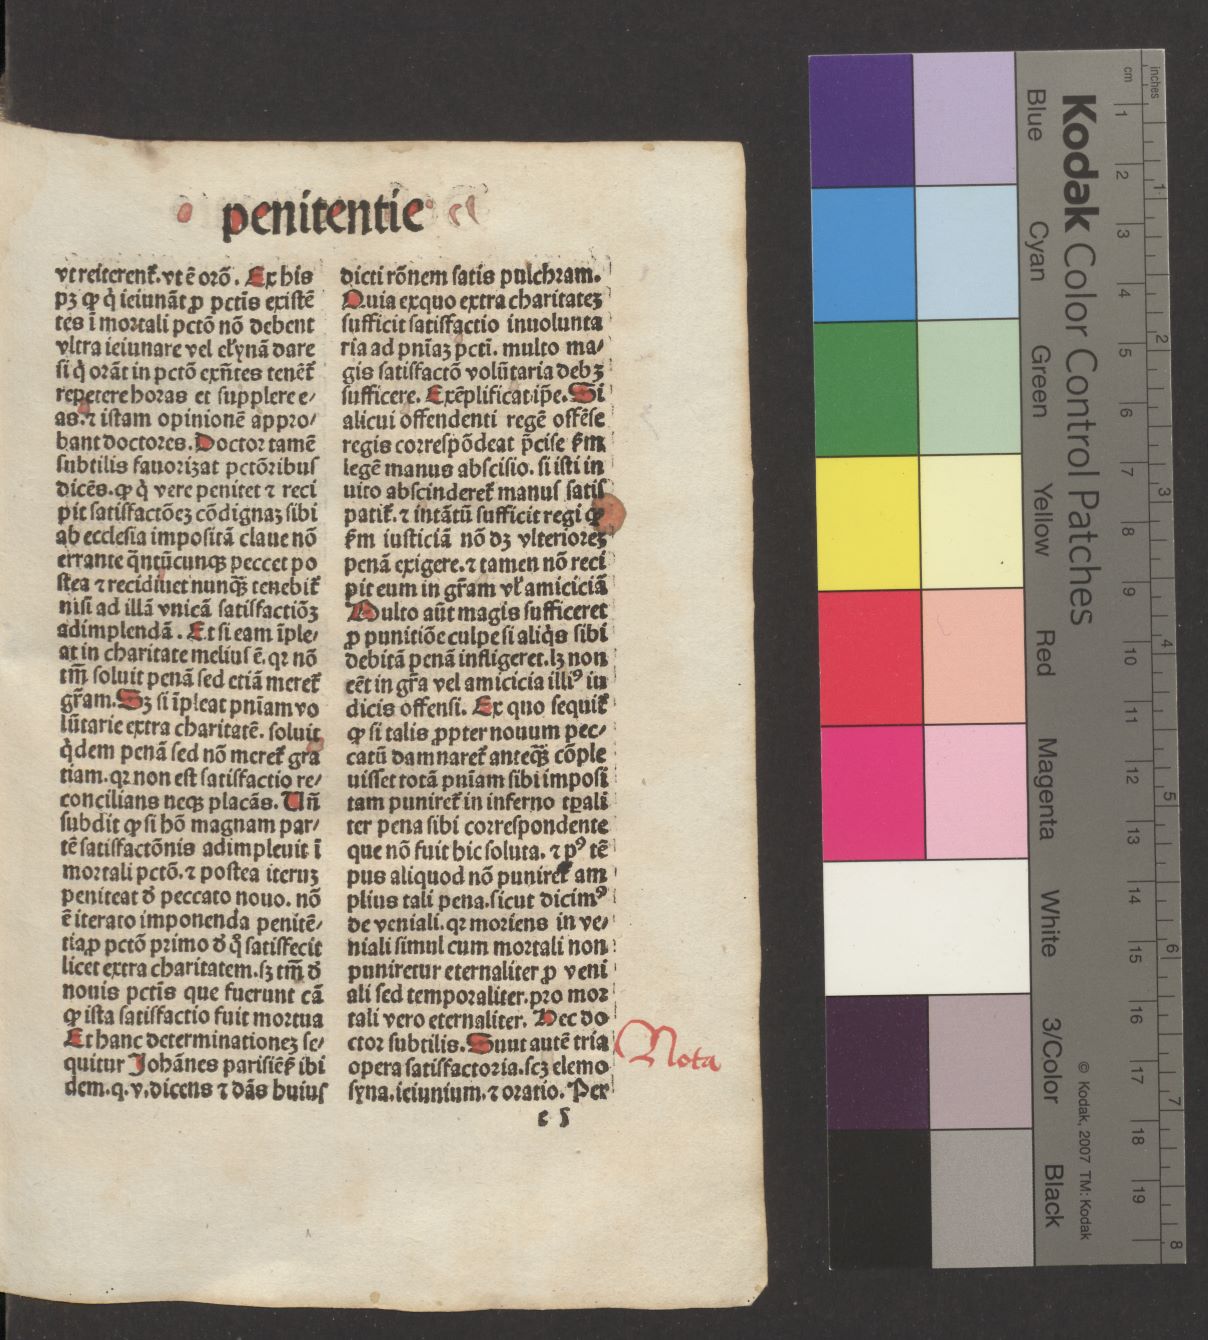 penitentie
vt reiterent᷑. vt ē orō. Ex his
pꝫ ꝙ q̇ ieiunāt ꝓ pctīs existē
tes ī mortali pctō nō debent
vltra ieiunare vel elỹnā dare
si q̇ orāt in pctō exñtes tenēt᷑
repetere horas et supplere e⸗
as. ⁊ istam opinionē appro⸗
bant doctores. Doctor tamē
subtilis fauorizat pctōribus
dicēs. ꝙ q̇ vere penitet ⁊ reci
pit satisfactōeꝫ cōdignaꝫ sibi
ab ecclesia impositā claue nō
errante q̄ntūcunqꝫ peccet po
stea ⁊ recidiuet nunqꝫ̄ tenebit᷑
nisi ad illā vnicā satisfactiōꝫ
adimplendā. Et si eam īple⸗
at in charitate melius ē. qꝛ nō
tm̄ soluit penā sed etiā meret᷑
gr̄am. Sꝫ si īpleat pniam vo
lūtarie extra charitatē. soluit
q̇dem penā sed nō meret᷑ gra
tiam. qꝛ non est satisfactio re⸗
concilians neqꝫ placās. Vñ
subdit ꝙ si hō magnam par⸗
tē satisfactōnis adimpleuit ī
mortali pctō. ⁊ postea iteruꝫ
peniteat đ peccato nouo. nō
ē iterato imponenda penitē⸗
tia ꝓ pctō primo đ q̄ satisfecit
licet extra charitatem. sꝫ tm̄ đ
nouis pctīs que fuerunt cā
ꝙ ista satisfactio fuit mortua
Et hanc determinationeꝫ se⸗
quitur Johānes parisiēs̄ ibi
dem. q. v. dicens ⁊ dās huius
dicti rōnem satis pulchram.
Quia exquo extra charitateꝫ
sufficit satisfactio inuolunta
ria ad pnīaꝫ pctī. multo ma⸗
gis satisfactō volūtaria debꝫ
sufficere. Exēplificat ip̄e. Si
alicui offendenti regē offēse
regis correspōdeat p̄cise ẜm
legē manus abscisio. si isti in
uito abscinderet᷑ manus satis
patit᷑. ⁊ intātū sufficit regi ꝙ
ẜm iusticiā nō dꝫ vlterioreꝫ
penā exigere. ⁊ tamen nō reci
pit eum in gr̄am vl᷑ amiciciā
Multo aūt magis sufficeret
ꝓ punitiōe culpe si aliq̇s sibi
debitā penā infligeret. lꝫ non
eēt in gr̄a vel amicicia illiꝰ iu
dicis offensi. Ex quo sequit᷑
ꝙ si talis ꝓpter nouum pec⸗
catū damnaret᷑ anteqꝫ̄ cōple
uisset totā pniam sibi imposi
tam puniret᷑ in inferno tꝑali
ter pena sibi correspondente
que nō fuit hic soluta. ⁊ pꝰ tē
pus aliquod nō puniret᷑ am
plius tali pena. sicut dicimꝰ
de veniali. qꝛ moriens in ve⸗
niali simul cum mortali non
puniretur eternaliter ꝓ veni
ali sed temporaliter. pro mor
tali vero eternaliter. Hec do
ctor subtilis. Sunt autē tria
opera satisfactoria. scꝫ elemo
syna. ieiunium. ⁊ oratio. Per
e 5
Nota
Kodak Color Control Patches
Blue Cyan Green Yellow Red Magenta White 3/Color Black
© Kodak, 2007 TM: Kodak
cm 1 2 3 4 5 6 7 8 9 10 11 12 13 14 15 16 17 18 19
inches 1 2 3 4 5 6 7 8